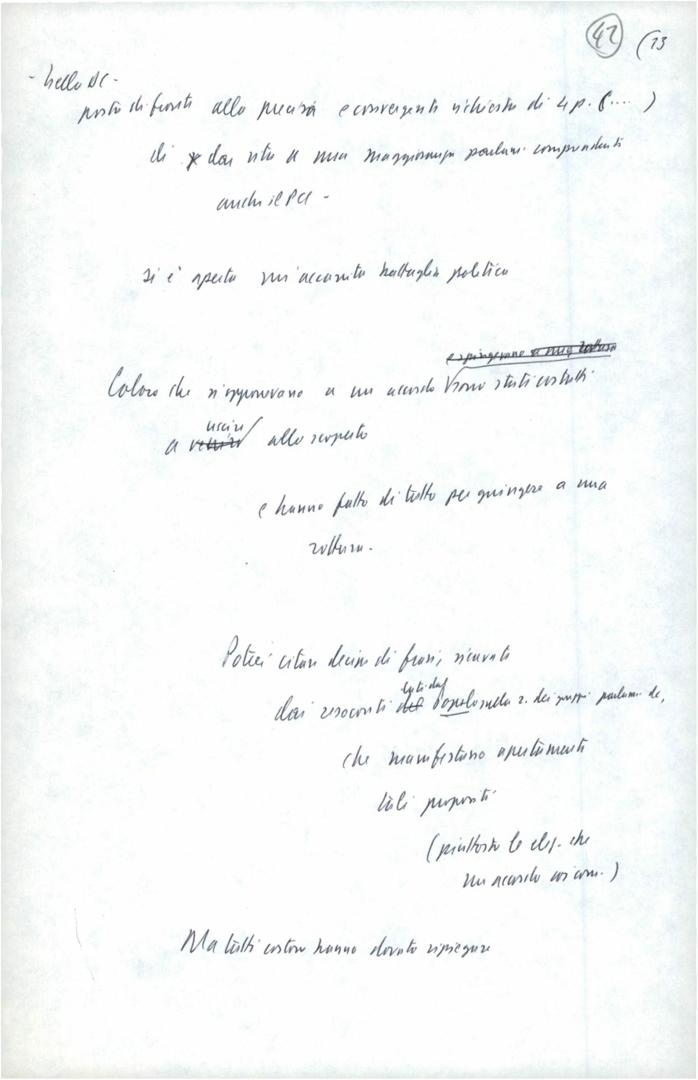 42 (13
- Nella DC -
posta di fronte alla precisa e convergente richiesta di 4 p. (....)
di dar vita a una maggioranza parlam. comprendente
anche il PCI -
si è aperta un'accanita battaglia politica
e spingevano a una rottura
Coloro che si opponevano a un accordo sono stati costretti
uscire
a venire allo scoperto
e hanno fatto di tutto per spingere a una
rottura.
Potrei citare decine di frasi, ricavate
dati dal
dai resoconti del Popolo sulla r. dei gruppi parlam. dc,
che manifestano apertamente
tali propositi
(piuttosto le elez. che
un accordo coi com.)
Ma tutti costoro hanno dovuto ripiegare